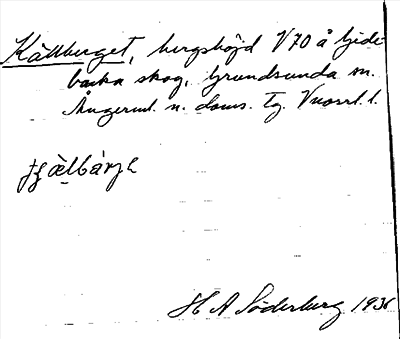 Källberget, bergshöjd V 70 å Gide-
backa skog, Grundsunda sn.
Ångerml. n. doms. Tg. Vnorrl. l.
H A Söderberg 1936